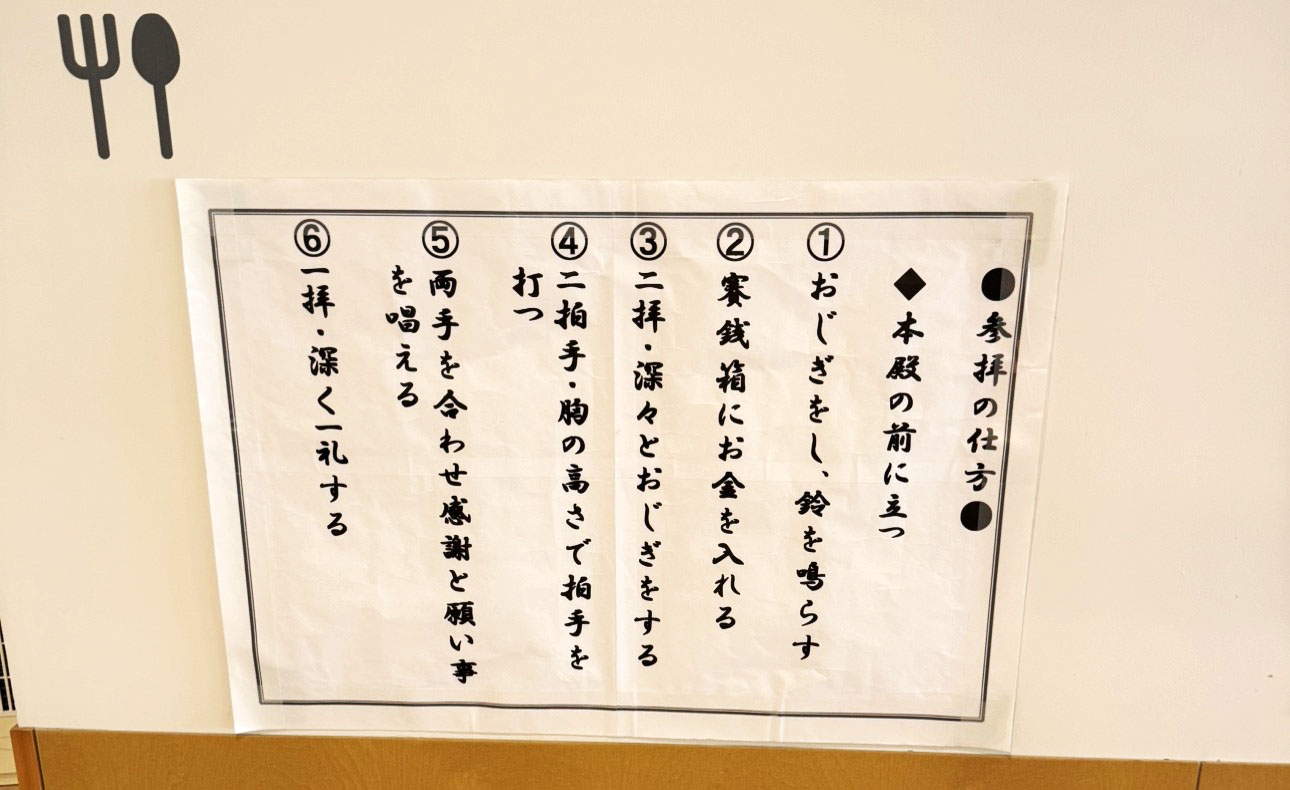 ●参拝の仕方●
◆本殿の前に立つ
①おじぎをし、鈴を鳴らす
②賽銭箱にお金を入れる
③二拝・深々とおじぎをする
④二拍手・胸の高さで拍手を
打つ
⑤両手を合わせ感謝と願い事
を唱える
⑥一拝・深く一礼する